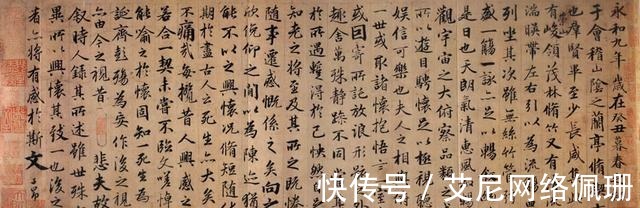 永和九年歲在癸丑暮春
于會稽山陰之蘭亭脩
也羣賢畢至少長咸
有峻領茂林脩竹又有
湍暎帶左右引以為流
列坐其次雖無絲竹
盛一觴一詠亦足以暢叙
是日也天朗氣清惠風
觀宇宙之大俯察品類
所以遊目騁懷足以極視
娛信可樂也夫人之相
一世或取諸懷抱悟言
或因寄所託放浪形骸
趣舍萬殊靜躁不同
於所遇蹔得於己怏然
知老之將至及其所之既惓
隨事遷感慨係之矣向之
欣俛仰之閒以為陳迹
能不以之興懷況脩短隨
期於盡古人云死生亦大矣
不痛哉每攬昔人興感之
若合一契未嘗不臨文嗟
能喻之於懷固知一死生為
誕齊彭殤為妄作後之視
亦由今之視昔悲夫故
叙時人錄其所述雖世殊
異所以興懷其致一也後之
者亦將有感於斯文
快传号/艾尼网络佩珊